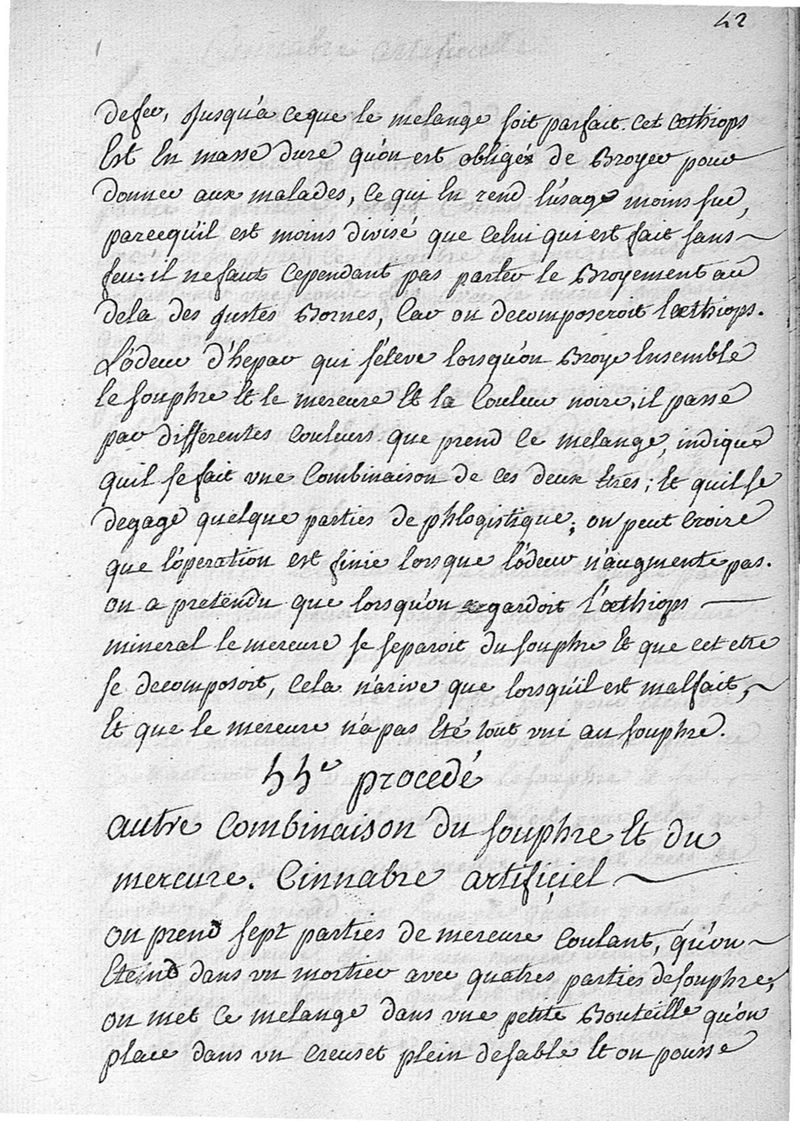 42
defer, jusqu'à ceque le melange soit parfait. cet œthiops
Est En masse dure qu'on est obligés de Broyer pour
donner aux malades, ce qui En rend l'usage moins sur,
parcequ'il est moins divisé que celui qui est fait sans
feu: il nefaut cependant pas porter le Broyement au
dela des justes Bornes, Car on decomposeroit l'œthiops.
L'odeur d'hepar qui s'éleve lorsqu'on Broye Ensemble
le souphre Et le mercure Et la Couleur noire, il passe
par differentes couleurs que prend ce melange, indique
quil se fait une Combinaison de ces deux Etres; Et quil se
degage quelque parties de phlogistique; on peut Croire
que l'operation est finie lorsque l'odeur n'augmente pas.
on a pretendu que lorsqu'on gardoit l'œthiops
mineral le mercure se separoit du souphre Et que cet etre
se decomposoit, Cela n'arive que lorsqu'il est malfait,
Et que le mercure n'a pas Eté tout uni au souphre.
44e procedé
autre Combinaison du souphre Et du
mercure. Cinnabre artificiel
on prend sept parties de mercure coulant, qu'on
Eteind dans un mortier avec quatres parties desouphre,
on met ce melange dans une petite Bouteille qu'on
place dans un Creuset plein desable Et on pousse